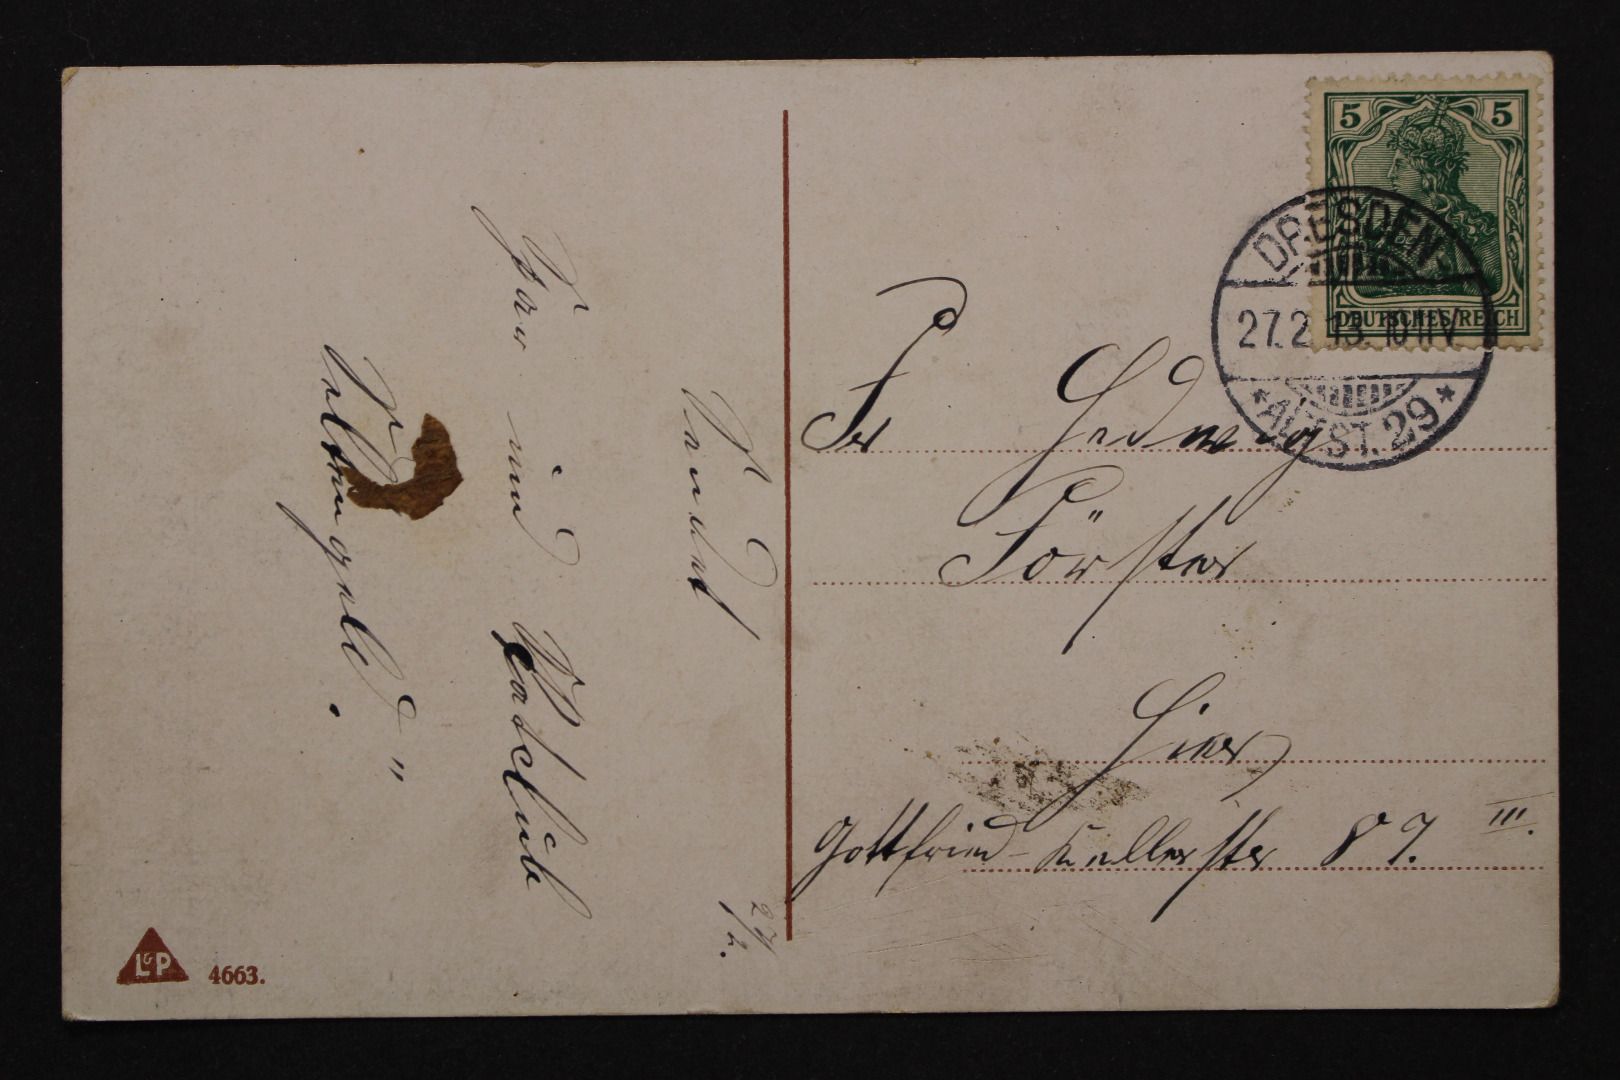 27/2.
Sendet
Paul und
4663.
L&P
5 5
DEUTSCHES REICH
DRESDEN-
27.2.13. 10-11V
* ALTST. 29 *
Fr Hedwig
Förster
Hier
Gottfried-Kellerstr 87. III.